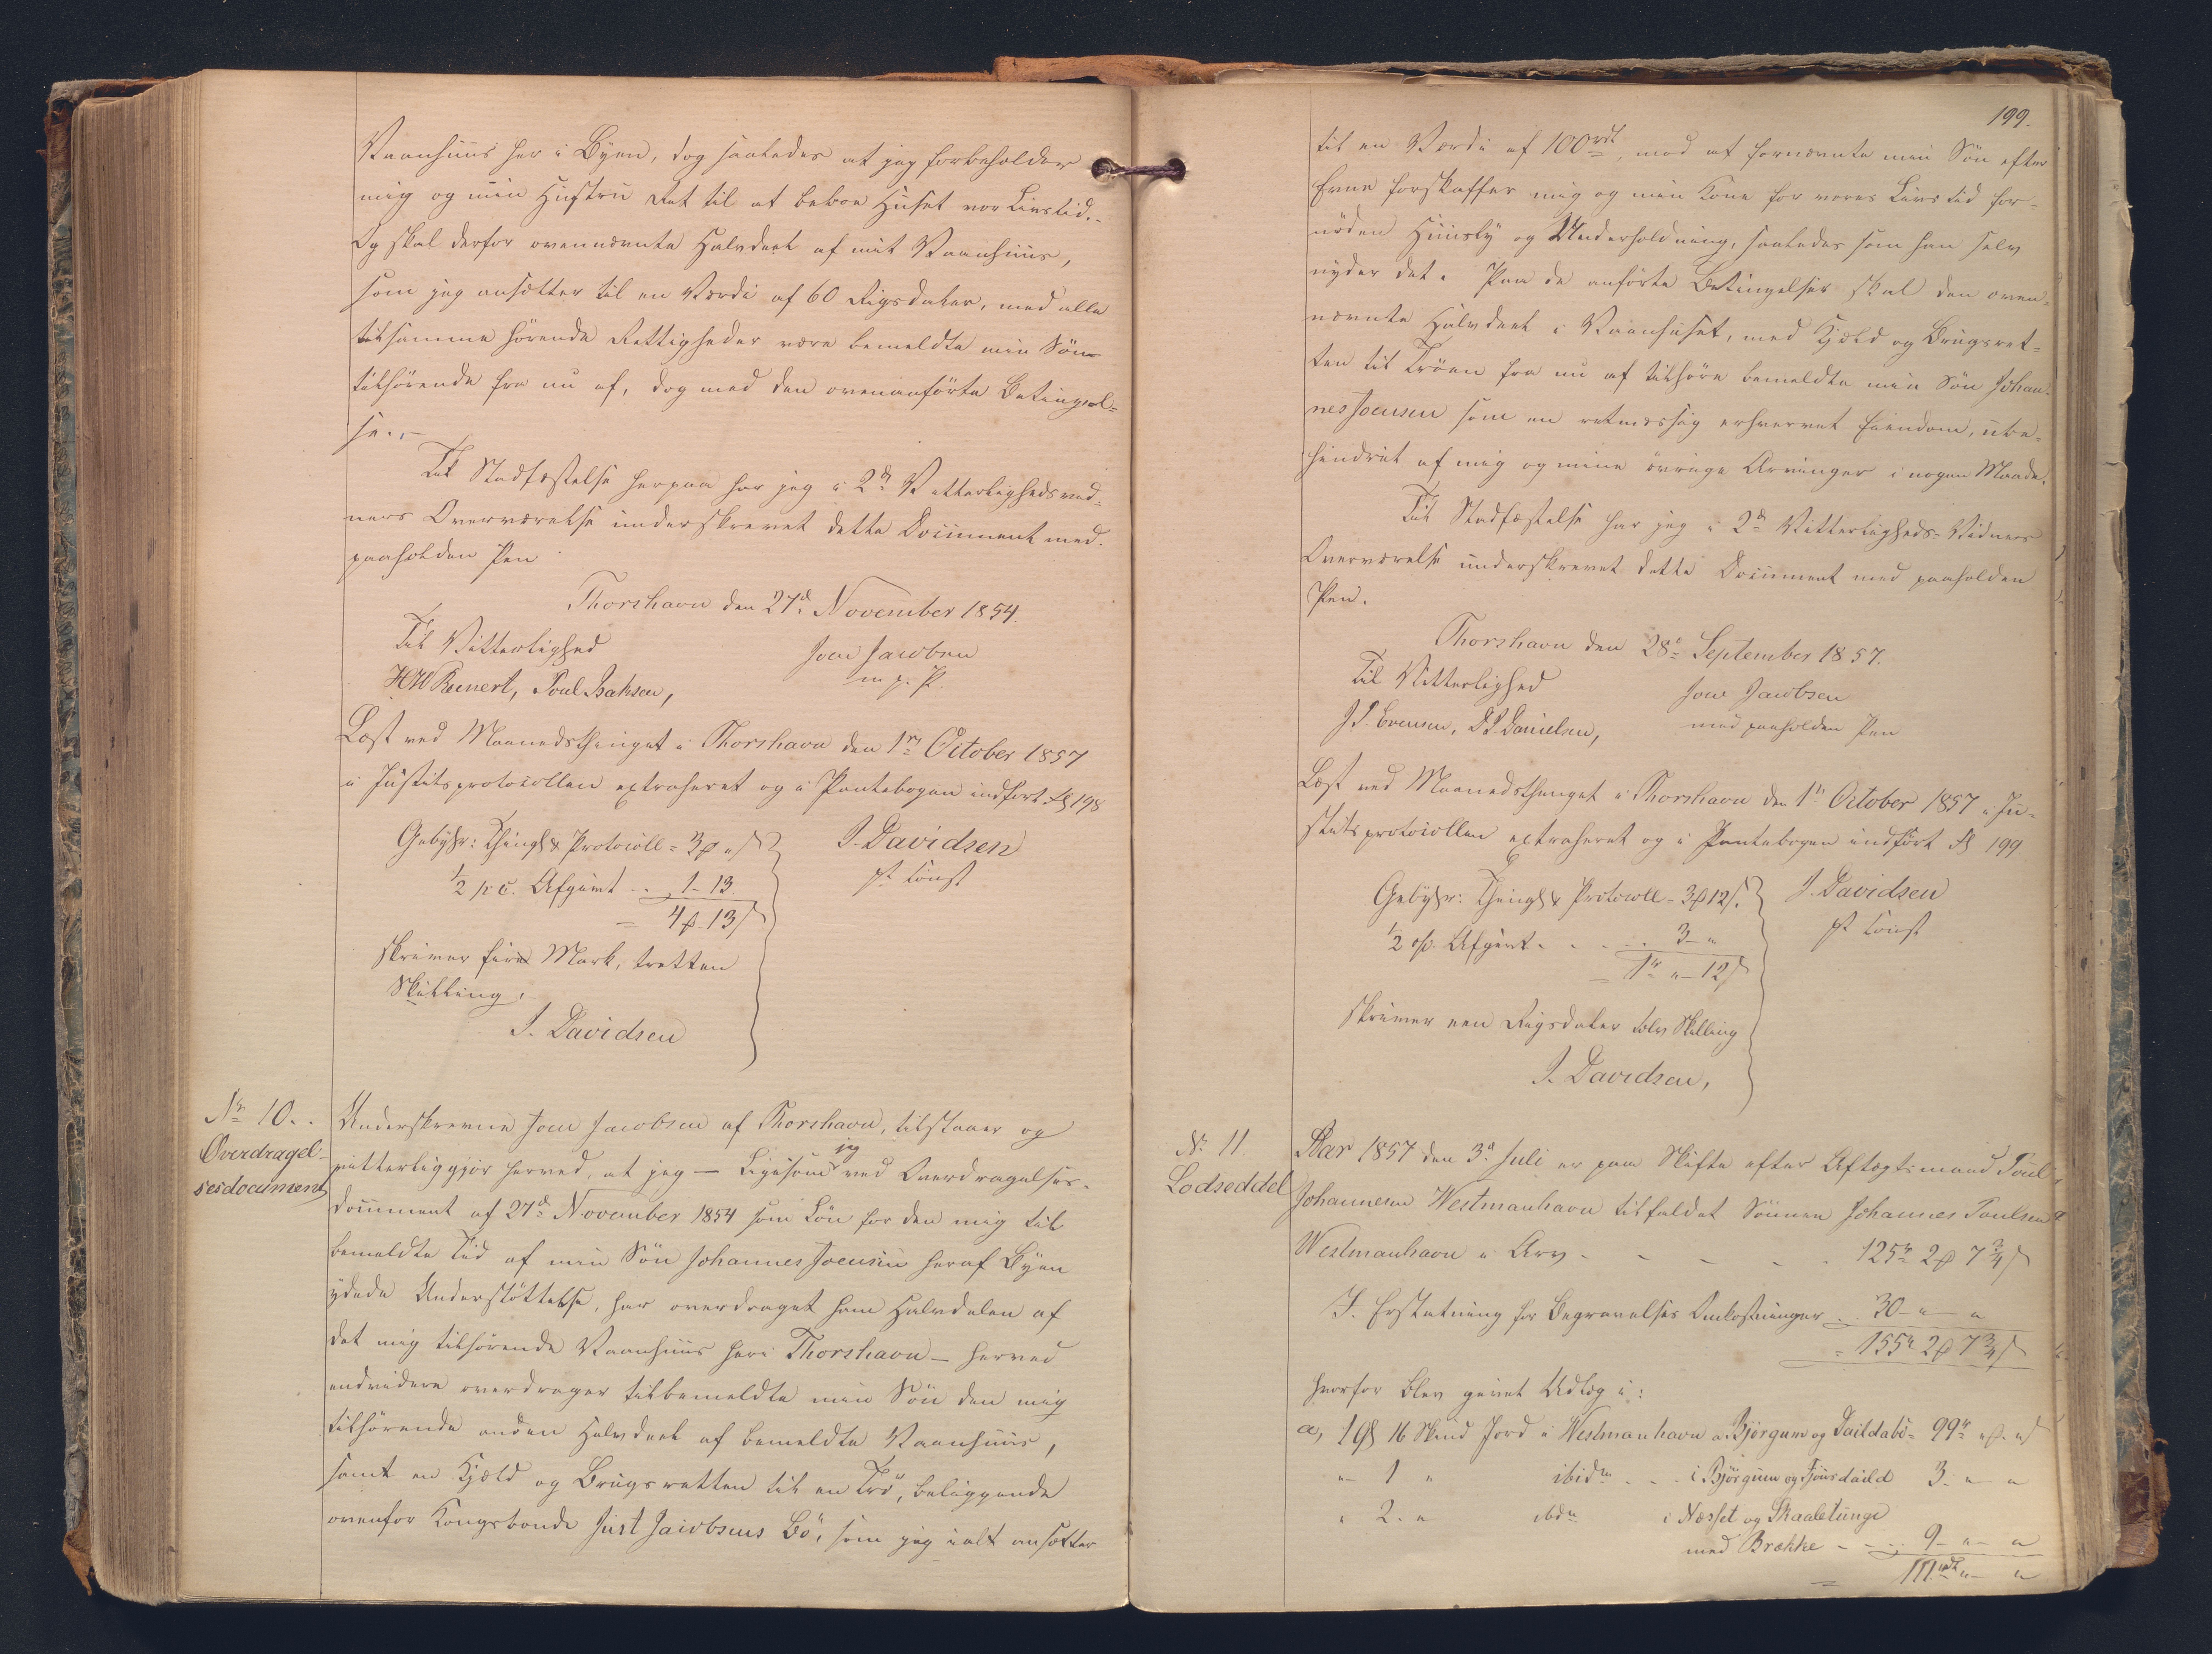 Vaanhuus her i Byen, dog saaledes at jeg forbeholder
mig og min Hustru Ret til at beboe Huset vor Livstid.-
Og skal derfor ovennævnte Halvdeel af mit Vaanhuus,
som jeg ansætter til en Værdi af 60 Rigsdaler, med alle
tilsamme hørende Rettigheder være bemeldte min Søn
tilhørende fra nu af, dog med den ovenanførte Betingel-
se.-
Til Stadfæstelse herpaa har jeg i 2de Vitterlighedsvid-
ners Overværelse underskrevet dette Document med
paaholden Pen
Thorshavn den 27d November 1854.
Til Vitterlighed
Joen Jacobsen
m. p. P.
HW Reinert, Poul Isaksen,
Læst ved Maanedsthinget i Thorshavn den 1n October 1857
i Justitsprotocollen extraheret og i Pantebogen indført Fol 198
Gebyhr: Thingl & Protocoll = 3 " J. Davidsen
1/2 p C. Afgivt .. 1-13 pt const
= 4 . 13
skriver fire Mark, tretten
Skilling.
J. Davidsen
Nr 10..
Overdragel-
sesdocument
Underskrevne Joen Jacobsen af Thorshavn, tilstaaer og
vitterliggjør herved, at jeg — Ligesom jeg ved Overdragelses-
document af 27d November 1854 som Løn for den mig til
bemeldte Tid af min Søn Johannes Joensen heraf Byen
ydede Understøttelse, har overdraget ham Halvdelen af
det mig tilhørende Vaanhuus heri Thorshavn — herved
endvidere overdrager tilbemeldte min Søn den mig
tilhørende anden Halvdeel af bemeldte Vaanhuus,
samt en Kjæld og Brugsretten til en Trø, beliggende
ovenfor Kongsbonde Just Jacobsens Bø, som jeg ialt ansætter
199.
til en Værdi af 100rdl, mod at fornævnte min Søn efter
Evne forskaffer mig og min Kone for vores Livs tid for-
nøden Huusly og Underholdning, saaledes som han selv
nyder det. Paa de anførte Betingelser skal den oven-
nævnte Halvdeel i Vaanhuset, med Kjæld og Brugsret-
ten til Trøen fra nu af tilhøre bemeldte min Søn Johan-
nes Joensen som en retmæssig erhvervet Eiendom, ube-
hindret af mig og mine øvrige Arvinger i nogen Maade.
Til Stadfæstelse har jeg i 2de Vitterligheds-Vidners
Overværelse underskrevet dette Document med paaholden
Pen.
Thorshavn den 28d September 1857.
Til Vitterlighed
Joen Jacobsen
med paaholden Pen
J. P. Evensen, D. P. Danielsen,
Læst ved Maanedsthinget i Thorshavn den 1n October 1857 i Ju-
stitsprotocollen extraheret og i Pantebogen indført Fol 199
Gebyhr: Thingl & Protocoll = 3 12 J. Davidsen
1/2 p. Afgivt . . . . 3 - " pt Const
= 1r " - 12
skriver een Rigsdaler tolv Skilling
J. Davidsen,
Nr. 11.
Lodseddel
Aar 1857 den 3d Juli er paa Skifte efter Aftægtsmand Poul
Johannesen Westmanhavn tilfaldet Sønnen Johannes Poulsen
Westmanhavn i Arv - - - - - 125r 2 7 3/4
I. Erstatning for Begravelses Omkostninger . . 30 - " - "
= 155r 2 7 3/4
hvorfor blev givet Udlæg i:
a, 1 G 16 Skind Jord i Westmanhavn a Bjørgum og Daildabø = 99r " . "
" 1 " ibidm . . . i Bjørgum og Fjönsdaild 3 . " - "
" 2 . " ibdm i Næsset og Skaaletunge
med Brække - - .. 9 - " - "
= 111rdl " - "